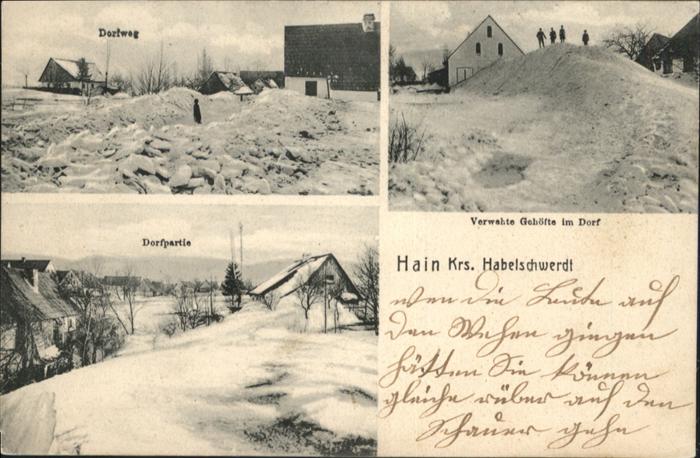 Dorfweg
Verwehte Gehöfte im Dorf
Dorfpartie
Hain Krs. Habelschwerdt
wen die Leute auf
den Wehen giengen
hätten Sie können
gleiche rüber auf den
Schauer gehn